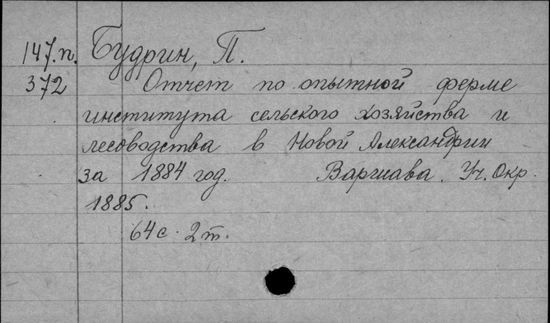 147.п. Будрин, П.
372 Отчет по опытной ферме
института сельского хозяйства и
лесоводства в Новой Александрии
за 1884 год. Варшава. Уч. Окр.
1885.
64 с. 2 т.